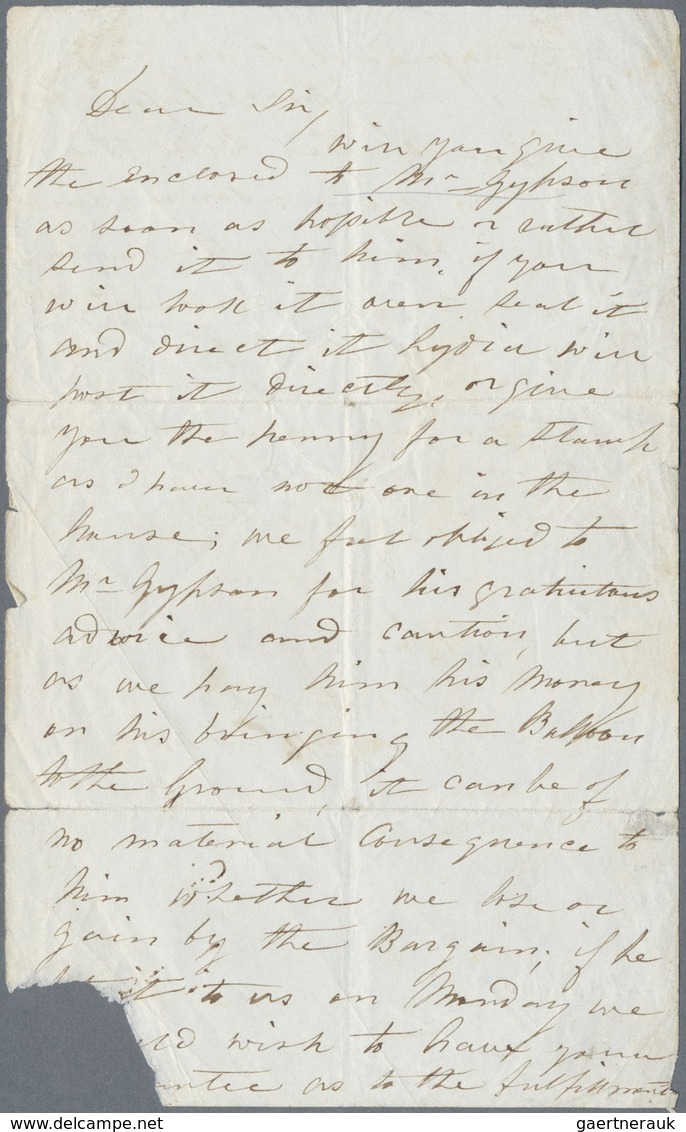 Dear Sir,
will you give
the enclosed to Mr Gypson
as soon as possible or rather
send it to him, if you
will look it over seal it
and direct it Lydia will
post it directly, or give
you the penny for a stamp
as I have not one in the
house; we feel obliged to
Mr Gypson for his gratuitous
advice and caution, but
as we pay him his money
on his bringing the Balloon
to the Ground, it can be of
no material Consequence to
him whether we lose or
gain by the Bargain; if he
it to us on Monday we
wish to have your
as to the fulfillment
gaertnerauk@yahoo.com